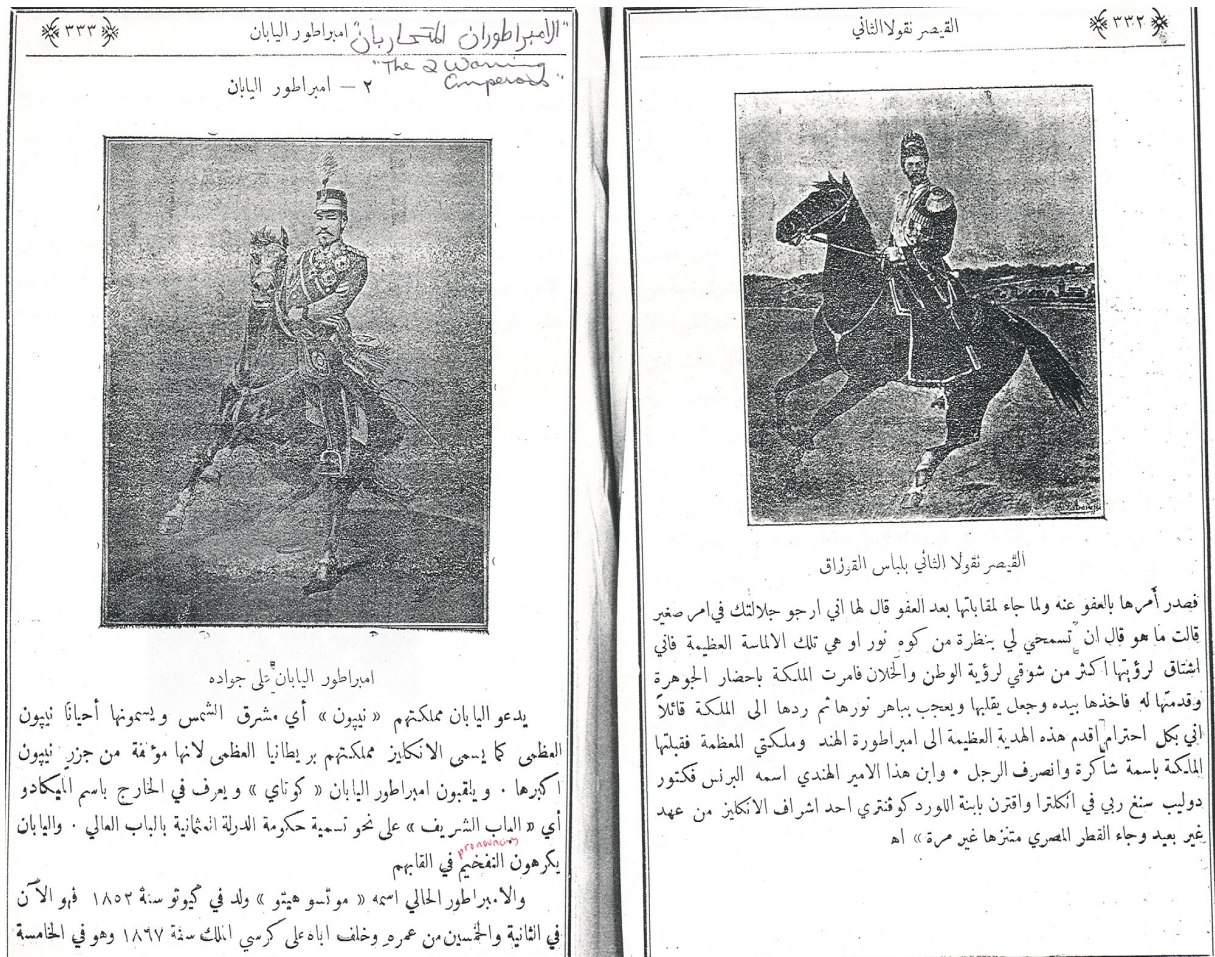 ﴿٣٣٢﴾
القيصر نقولا الثاني
القيصر نقولا الثاني بلباس القوزاق
فصدر أمرها بالعفو عنه ولما جاء لمقابلتها بعد العفو قال لها اني ارجو جلالتك في امر صغير
قالت ما هو قال ان تسمحي لي بنظرة من كوه نور او هي تلك الالماسة العظيمة فاني
اشتاق لرؤيتها اكثر من شوقي لرؤية الوطن والخلان فامرت الملكة باحضار الجوهرة
وقدمتها له فاخذها بيده وجعل يقلبها ويعجب بباهر نورها ثم ردها الى الملكة قائلاً
اني بكل احترام اقدم هذه الهدية العظيمة الى امبراطورة الهند وملكتي المعظمة فقبلتها
الملكة باسمة شاكرة وانصرف الرجل • وابن هذا الامير الهندي اسمه البرنس فكتور
دوليب سنغ ربي في انكلترا واقترن بابنة اللورد كوفنتري احد اشراف الانكليز من عهد
غير بعيد وجاء القطر المصري متنزها غير مرة » اه
امبراطور اليابان
﴿٣٣٣﴾
"الامبراطوران المتحاربان"
"The 2 Warring
Emperors"
٢ — امبراطور اليابان
امبراطور اليابان على جواده
يدعو اليابان مملكتهم « نيپون » أي مشرق الشمس ويسمونها أحيانًا نيپون
العظمى كما يسمى الانكليز مملكتهم بريطانيا العظمى لانها مؤلفة من جزر نيپون
اكبرها • ويلقبون امبراطور اليابان « كوتاي » ويعرف في الخارج باسم الميكادو
أي « الباب الشريف » على نحو تسمية حكومة الدولة العثمانية بالباب العالي • واليابان
pronouncing
يكرهون التفخيم في القابهم
والامبراطور الحالي اسمه « موتسو هيتو » ولد في كيوتو سنة ١٨٥٢ فهو الآن
في الثانية والخمسين من عمره وخلف اباه على كرسي الملك سنة ١٨٦٧ وهو في الخامسة